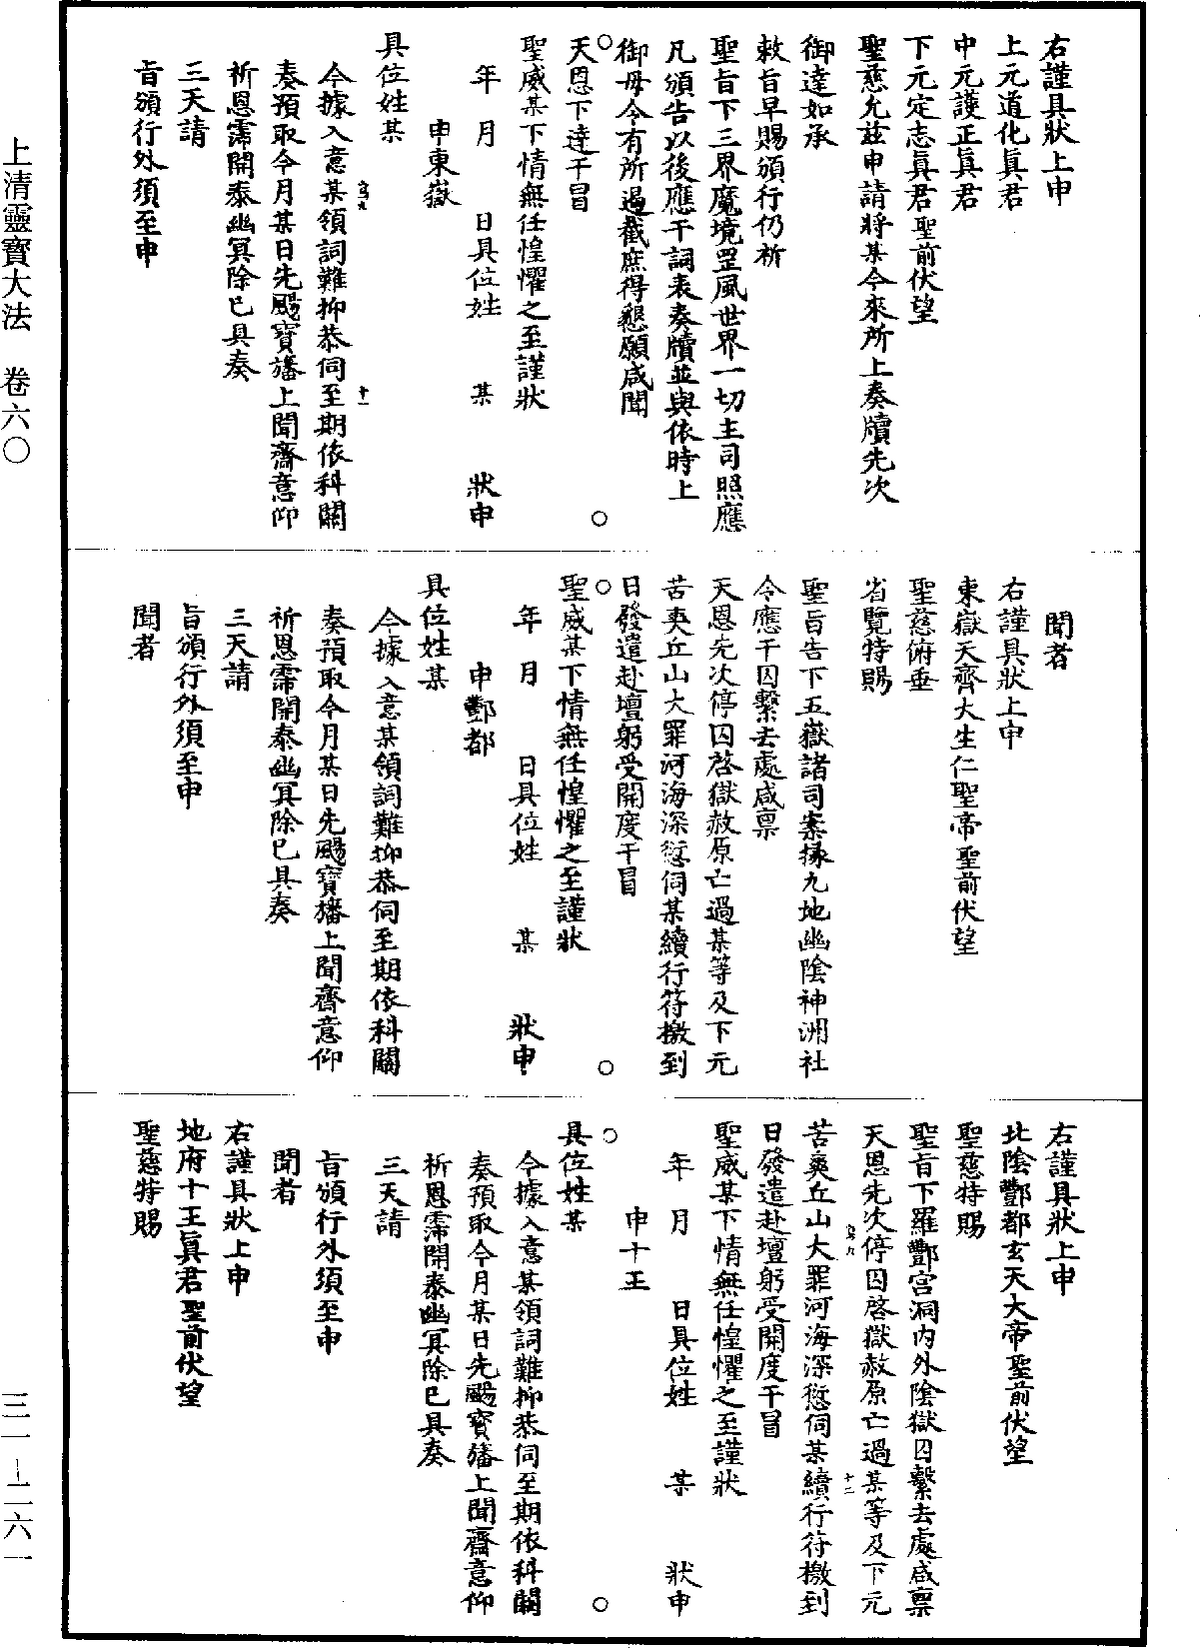 上清靈寶大法　卷六〇
右謹具狀上申
上元道化眞君
中元護正眞君
下元定志眞君聖前伏望
聖慈允茲申請將某今來所上奏牘先次
御達如承
敕旨早賜頒行仍祈
聖旨下三界魔境罡風世界一切主司照應
凡頒告以後應干詞表奏牘並與依時上
御毋令有所遏截庶得懇願咸聞
天恩下達干冒
聖威某下情無任惶懼之至謹狀
年　月　日具位姓　某　狀申
申東嶽
具位姓某
今據入意某領詞難抑恭伺至期依科關
奏預取今月某日先颺寶旛上聞齋意仰
祈恩霈開泰幽冥除已具奏
三天請
旨頒行外須至申
聞者
右謹具狀上申
東嶽天齊大生仁聖帝聖前伏望
聖慈俯垂
省覽特賜
聖旨告下五嶽諸司案掾九地幽陰神洲社
令應干囚繫去處咸稟
天恩先次停囚啓獄赦原亡過某等及下元
苦爽丘山大罪河海深愆伺某續行符檄到
日發遣赴壇躬受開度干冒
聖威某下情無任惶懼之至謹狀
年　月　日具位姓　某　狀申
申酆都
具位姓某
今據入意某領詞難抑恭伺至期依科關
奏預取今月某日先颺寶旛上聞齋意仰
祈恩霈開泰幽冥除已具奏
三天請
旨頒行外須至申
聞者
右謹具狀上申
北陰酆都玄天大帝聖前伏望
聖慈特賜
聖旨下羅酆宮洞內外陰獄囚繫去處咸稟
天恩先次停囚啓獄赦原亡過某等及下元
苦爽丘山大罪河海深愆伺某續行符檄到
日發遣赴壇躬受開度干冒
聖威某下情無任惶懼之至謹狀
年　月　日具位姓　某　狀申
申十王
具位姓某
今據入意某領詞難抑恭伺至期依科關
奏預取今月某日先颺寶旛上聞齋意仰
祈恩霈開泰幽冥除已具奏
三天請
旨頒行外須至申
聞者
右謹具狀上申
地府十王眞君聖前伏望
聖慈特賜
三一-二六一